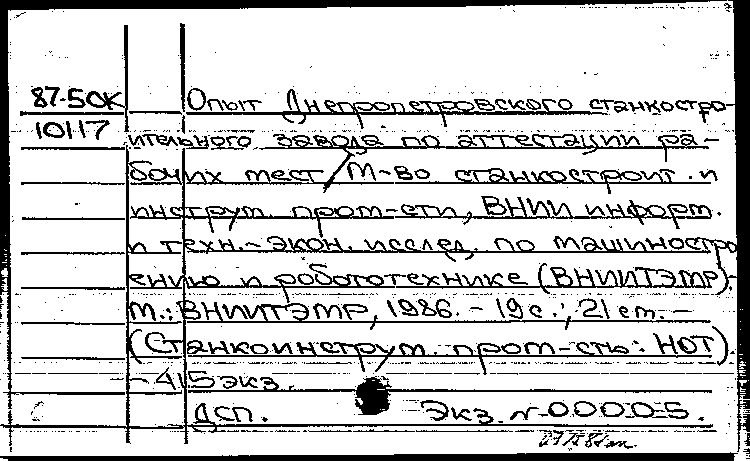 87-5СК Опыт Днепропетровского станкостро-
10117 ительного завода по аттестации ра-
бочих мест / М-во станкостроит. и
инструм. пром-сти, ВНИИ информ.
и техн.-экон. исслед. по машиностро
ению и робототехнике (ВНИИТЭМР).-
М.: ВНИИТЭМР, 1986. - 19 с.; 21 cm. -
(Станкоинструм. пром-сть: НОТ).
- 415 экз.
ДСП. Экз. N-00005.